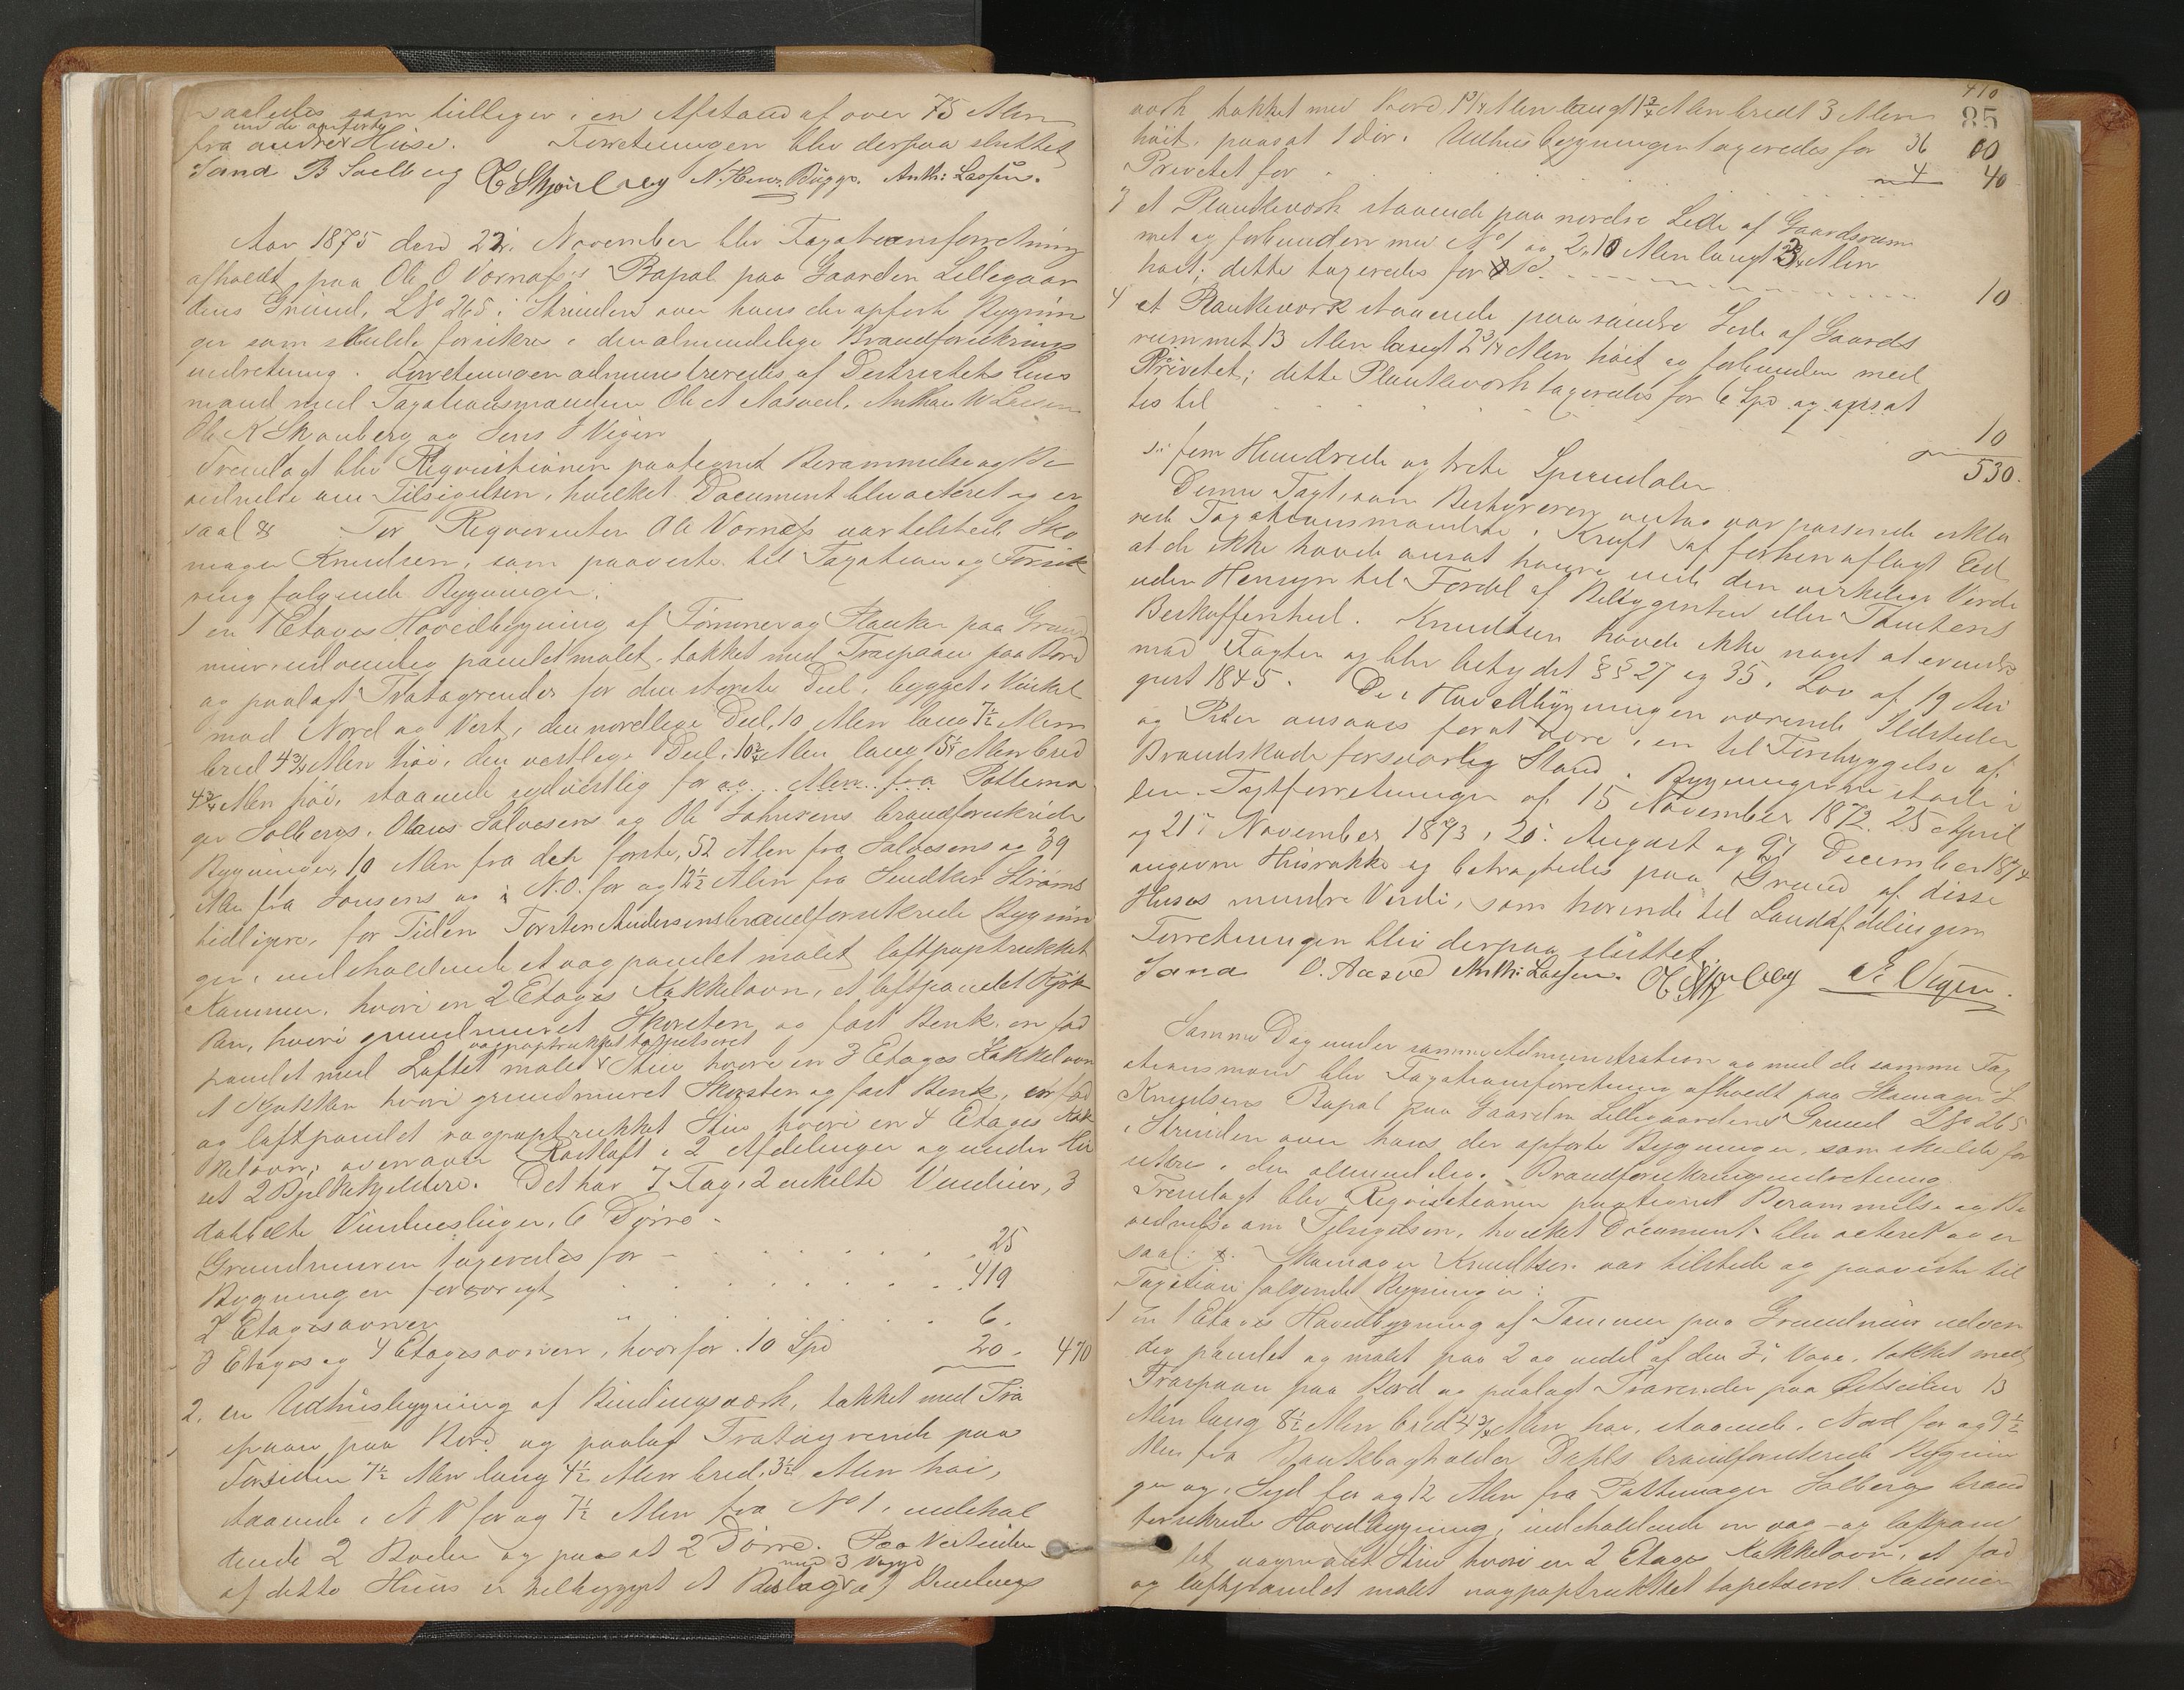 saaledes som tilliger i en Afstand af over 75 Alen
fra andre Huse. Forretningen blev derpaa sluttet
Sand B Solberg N. Henr. Bügge. Anth: Lassen.
Aar 1875 den 22i November blev Taxationsforretning
afholdt paa Ole O Vornæs's Bopæl paa Gaarden Lillegaar
dens Grund, LNo 265 i Strinden over hans der opførte Bygnin
ger som skulde forsikres i den almindelige Brandforsikrings
indretning. Forretningen administreredes af Districtets Lens
mand med Taxationsmændene Ole A Aasved, Anthon W Lassen
Ole K Skonberg og Jens J Vigen
Fremlagt blev Reqvisitionen paategnet Berammelse og Be
vidnelse om Tilsigelsen, hvilket Document blev acteret og er
saal: For Reqvirenten Ole Vornæs var tilstede Sko
mager Knudsen, som paaviste til Taxation og Forsik
ring følgende Bygninger:
1 en 1 Etages Hovedbygning af Tømmer og Planker paa Grund
mur, udvendig panelet malet, takket med Træspaan paa Bord
og paalagt Tratagrender for den største Deel, bygget i Vinkel
mod Nord og Vest, den nordlige Deel, 10 Alen lang 7½ Alen
bred 4¾ Alen høi, den vestlige Deel, 10¾ Alen lang Alen bred
4¾ Alen høi, staaende sydvestlig for og Alen fra Pottema
ger Solbergs, Olaus Salvesens og Ole Johnsens brandforsikrede
Bygninger, 10 Alen fra den første, 52 Alen fra Salvesens og 39
Alen fra Jonsens og i N.O. for og 12½ Alen fra Snedker Strøms
tidligere, for Tiden Torsten Andersens brandforsikrede Bygnin
ger, indeholdende et vægpanelet malet loftpaptrukket
Kammer, hvori en 2 Etages Kakkelovn, et loftpanelet Kjøk
ken, hvori grundmuret Skorsten og fast Benk, en fod
panelet med Loftet malet vægpaptrukket tapetseret Stue hvori en 3 Etages Kakkelovn
et Kjøkken hvori grundmuret Skorsten og fast Benk, en fod
og loftpanelet vægpaptrukket Stue hvori en 4 Etages Kak
kelovn; ovenover Røstloft i 2 Afdelinger og under Hu
set 2 Bjelkekjeldere. Det har 7 Fag, 2 enkelte Vinduer, 3
dobbelte Vinduesluger, 6 Dørre.
Grundmuren taxeredes for 25
Bygningen forøvrigt 419
2 Etagesovnen 6.
3 Etages og 4 Etagesovnen, hvorfor 10 Spd 20. 470
2. en Udhusbygning af Bindingsværk, takket med Træ
spaan paa Bord og paalagt Tratagrende paa
Forsiden 7½ Alen lang 4½ Alen bred, 3½ Alen høi,
staaende i N V for og 7½ Alen fra No 1, indehol
dende 2 Boder og paasat 2 Dørre. Paa Vestsiden
af dette Huus er tilbygget et Beslag med 3 Vægge af Bindings
410
85
værk takket med Bord 1¾ Alen langt 1¾ Alen bredt 3 Alen
høit, paasat 1 Dør. Udhusbygningen taxeredes for 36
Privetet for 4 40
3 et Plankeværk staaende paa nordre Side af Gaardsrum
met og forbunden med No 1 og 2, 10 Alen langt 2¾ Alen
høit; dette taxeredes for 10
4 et Plankeværk staaende paa søndre Side af Gaards
rummet 13 Alen langt 2¾ Alen høit og forbunden med
Privetet; dette Plankeværk taxeredes for 6 Spd og opsat
tes til 10
530.
s: fem Hundrede og trete Speciedaler
Denne Taxt, som Bestyreren antog var passende erklæ
rede Taxationsmændene i Kraft af forhen aflagt Eed
at de ikke havde ansat høiere end den virkelige Værdi
uden Hensyn til Fordel af Beliggenhed eller Tomtens
Beskaffenhed. Knudsen havde ikke noget at erindre
mod Taxten og blev betydet §§ 27 og 35 i Lov af 19 Au
gust 1845. De i Hovedbygningen værende Ildsteder
og Piber ansaaes for at være i en til Forebyggelse af
Brandskade forsvarlig Stand. Bygningerne stode i
den i Taxtforretninger af 15 November 1872, 25 April
og 21i November 1873, 20i August og 9i December 1874
angivne Husrække og betragtedes paa Grund af disse
Huses mindre Værdi, som hørende til Landafdelingen
Forretningen blev derpaa sluttet.
Sand O. Aasved Anth: Lassen. J. Vigen.
Samme Dag under samme Administration og med de samme Tax
ationsmænd blev Taxationsforretning afholdt paa Skomager
Knudsens Bopæl paa Gaarden Lillegaardens Grund LNo 265
i Strinden over hans der opførte Bygninger, som skulde for
sikres i den almindelige Brandforsikringsindretning.
Fremlagt blev Reqvisitionen paategnet Berammelse og Be
vidnelse om Tilsigelsen, hvilket Document blev acteret og er
saal: Skomager Knudtsen var tilstede og paaviste til
Taxation følgende Bygninger:
1 en 1 Etages Hovedbygning af Tømmer paa Grundmur udven
dig panelet og malet paa 2 og endel af den 3i Væg, takket med
Træspaan paa Bord og paalagt Tagrender paa Østsiden 13
Alen lang 8½ Alen bred 4¾ Alen høi, staaende i Nord for og 9½
Alen fra Bankbogholder Dahls brandforsikrede Bygnin
ger og i Syd for og 12 Alen fra Pottemager Solbergs brand
forsikrede Hovedbygning, indeholdende en væg- og loftpane
let, vægmalet Stue hvori en 2 Etages Kakkelovn, et fod
og loftpanelet malet vægpaptrukket tapetseret Kammer